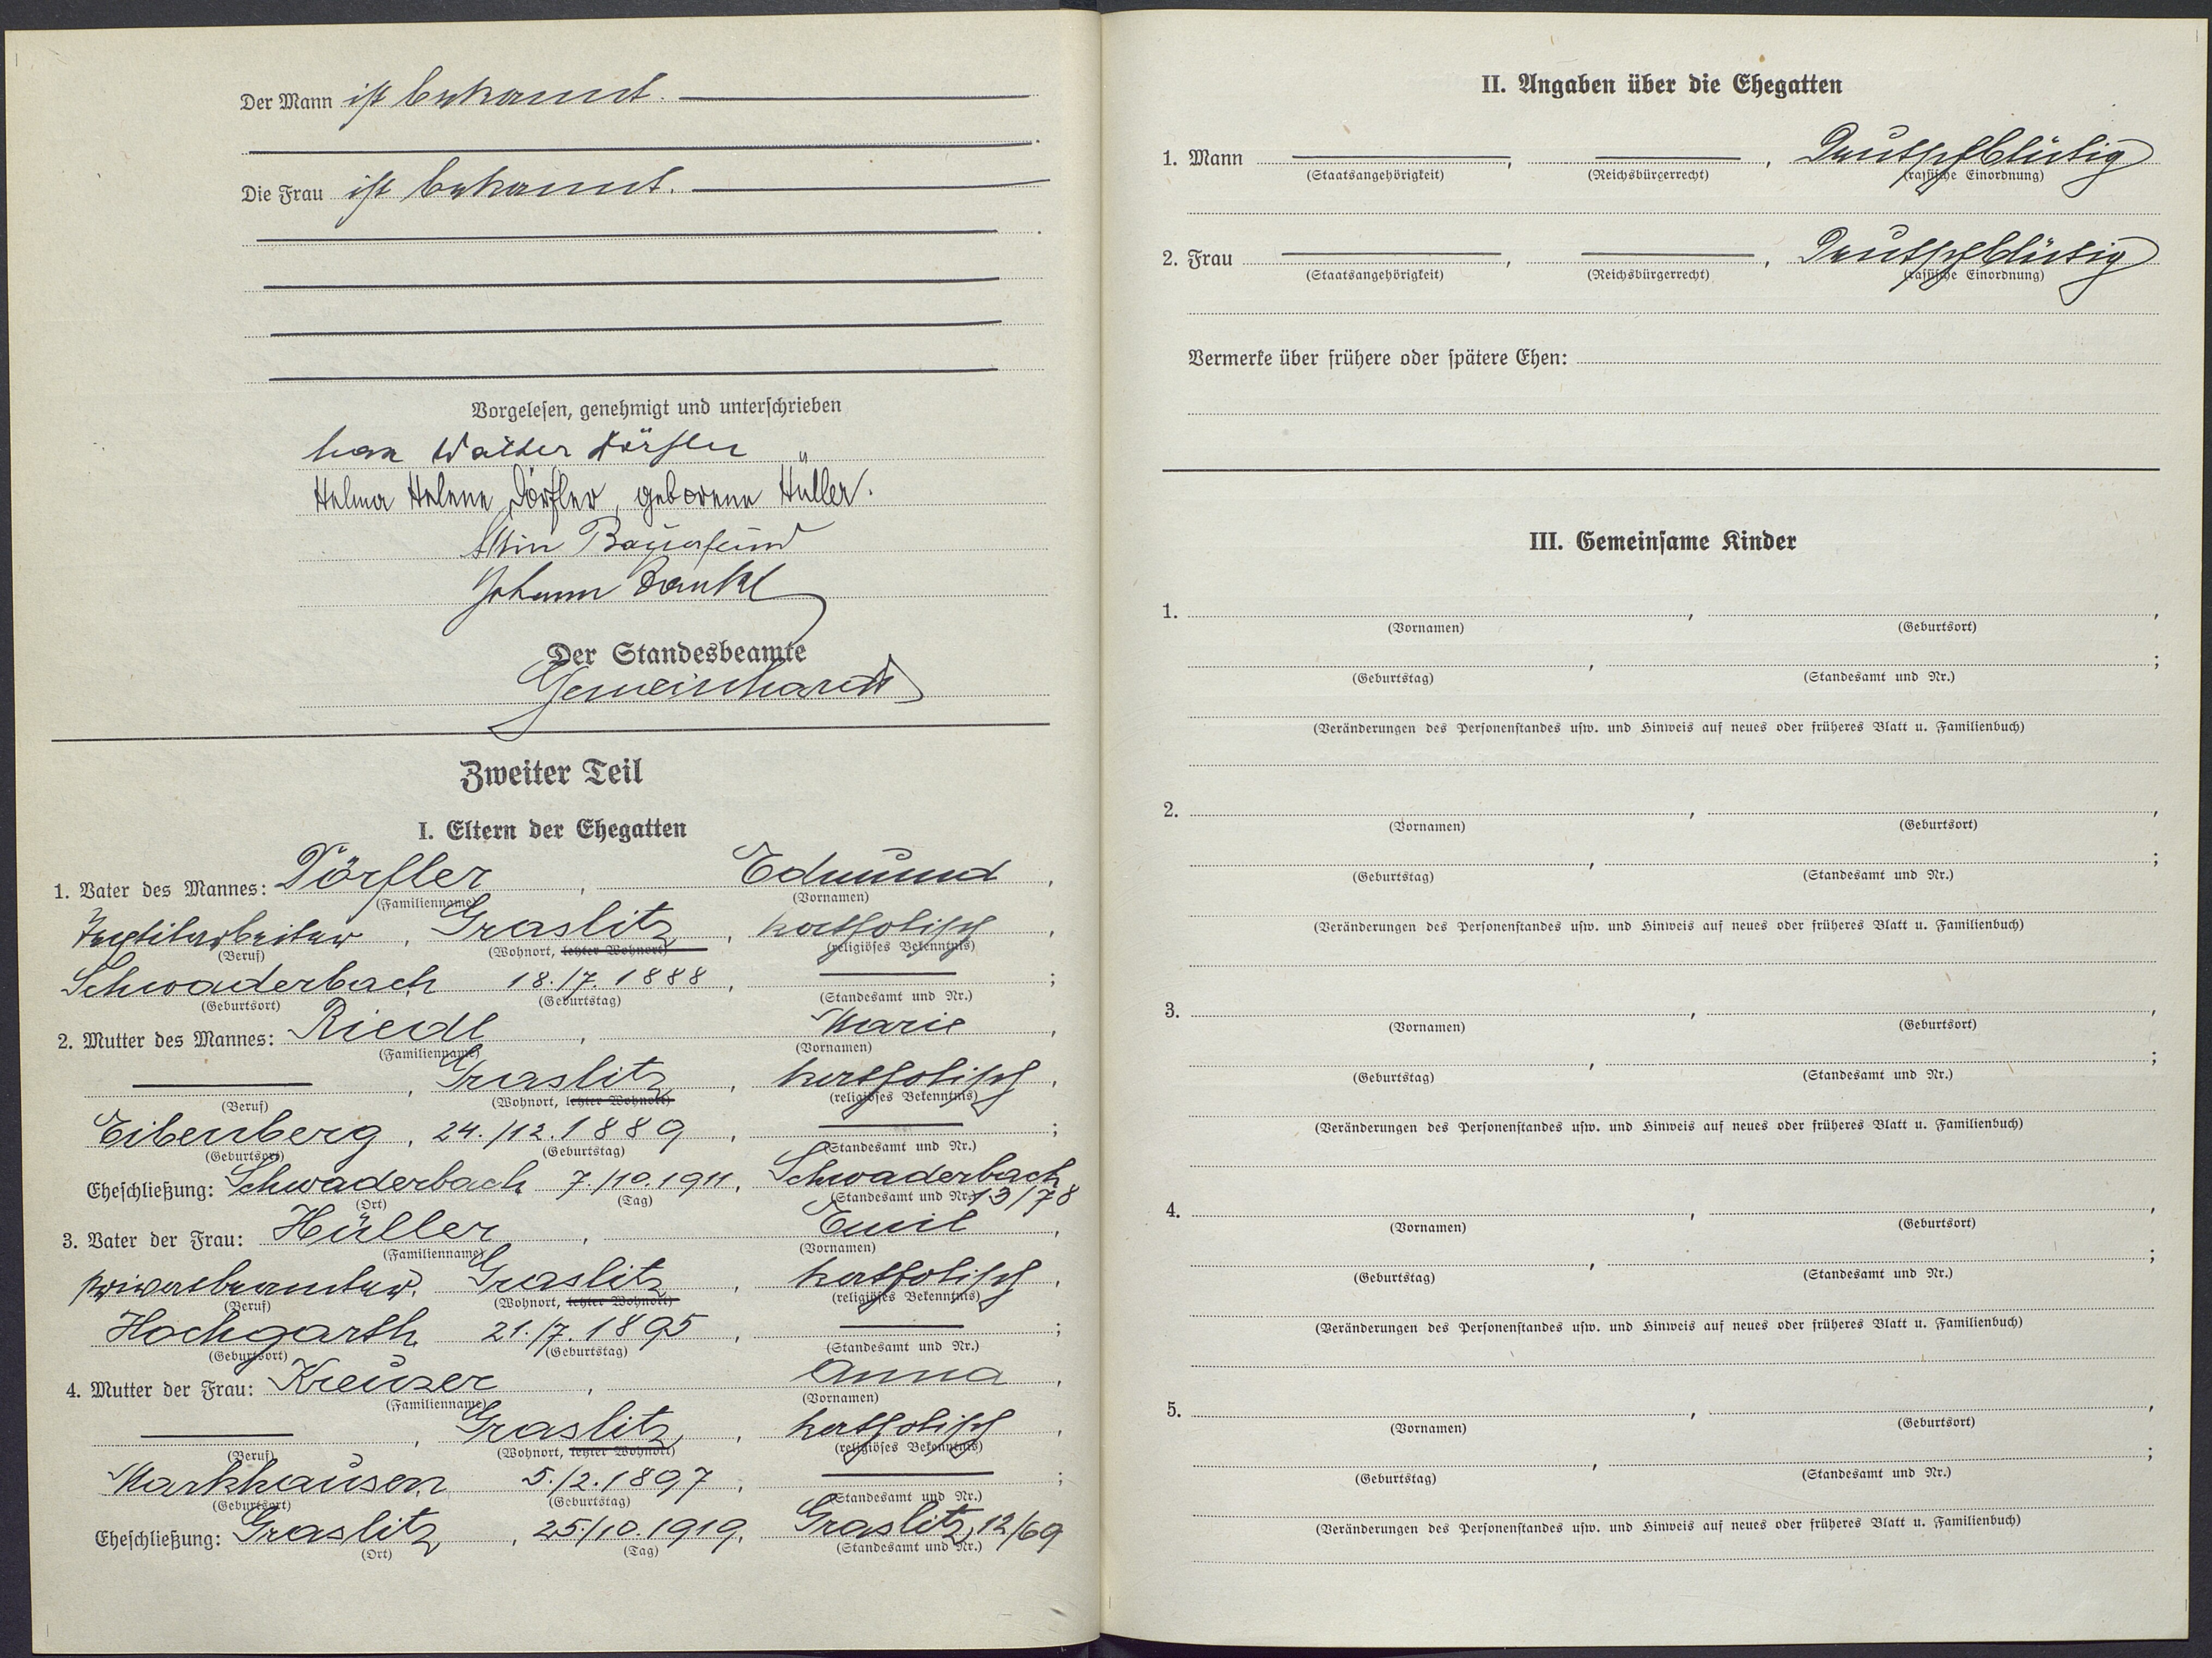 Der Mann ist bekannt.
Die Frau ist bekannt.
Vorgelesen, genehmigt und unterschrieben
Walter Dörfler
Helma Helene Dörfler, geborene Hüller.
Johann
Der Standesbeamte
Gemeinhardt
Zweiter Teil
I. Eltern der Ehegatten
1. Vater des Mannes: Dörfler, Edmund,
(Familienname) (Vornamen)
Textilarbeiter, Graslitz, katholisch,
(Beruf) (Wohnort, letzter Wohnort) (religiöses Bekenntnis)
Schwaderbach 18./7. 1888, ;
(Geburtsort) (Geburtstag) (Standesamt und Nr.)
2. Mutter des Mannes: Riedl, Marie,
(Familienname) (Vornamen)
, Graslitz, katholisch,
(Beruf) (Wohnort, letzter Wohnort) (religiöses Bekenntnis)
Eibenberg, 24./12. 1889, ;
(Geburtsort) (Geburtstag) (Standesamt und Nr.)
Eheschließung: Schwaderbach, 7./10. 1911, Schwaderbach
(Ort) (Tag) (Standesamt und Nr.) 13/78
3. Vater der Frau: Hüller, Emil,
(Familienname) (Vornamen)
Privatbeamter, Graslitz, katholisch,
(Beruf) (Wohnort, letzter Wohnort) (religiöses Bekenntnis)
Hochgarth 21./7. 1895, ;
(Geburtsort) (Geburtstag) (Standesamt und Nr.)
4. Mutter der Frau: Kreuzer, Anna,
(Familienname) (Vornamen)
, Graslitz, katholisch,
(Beruf) (Wohnort, letzter Wohnort) (religiöses Bekenntnis)
Markhausen 5./2. 1897, ;
(Geburtsort) (Geburtstag) (Standesamt und Nr.)
Eheschließung: Graslitz, 25./10. 1919, Graslitz, 12/69
(Ort) (Tag) (Standesamt und Nr.)
II. Angaben über die Ehegatten
1. Mann , , Deutschblütig
(Staatsangehörigkeit) (Reichsbürgerrecht) (rassische Einordnung)
2. Frau , , Deutschblütig
(Staatsangehörigkeit) (Reichsbürgerrecht) (rassische Einordnung)
Vermerke über frühere oder spätere Ehen:
III. Gemeinsame Kinder
1. , ,
(Vornamen) (Geburtsort)
, ;
(Geburtstag) (Standesamt und Nr.)
(Veränderungen des Personenstandes usw. und Hinweis auf neues oder früheres Blatt u. Familienbuch)
2. , ,
(Vornamen) (Geburtsort)
, ;
(Geburtstag) (Standesamt und Nr.)
(Veränderungen des Personenstandes usw. und Hinweis auf neues oder früheres Blatt u. Familienbuch)
3. , ,
(Vornamen) (Geburtsort)
, ;
(Geburtstag) (Standesamt und Nr.)
(Veränderungen des Personenstandes usw. und Hinweis auf neues oder früheres Blatt u. Familienbuch)
4. , ,
(Vornamen) (Geburtsort)
, ;
(Geburtstag) (Standesamt und Nr.)
(Veränderungen des Personenstandes usw. und Hinweis auf neues oder früheres Blatt u. Familienbuch)
5. , ,
(Vornamen) (Geburtsort)
, ;
(Geburtstag) (Standesamt und Nr.)
(Veränderungen des Personenstandes usw. und Hinweis auf neues oder früheres Blatt u. Familienbuch)